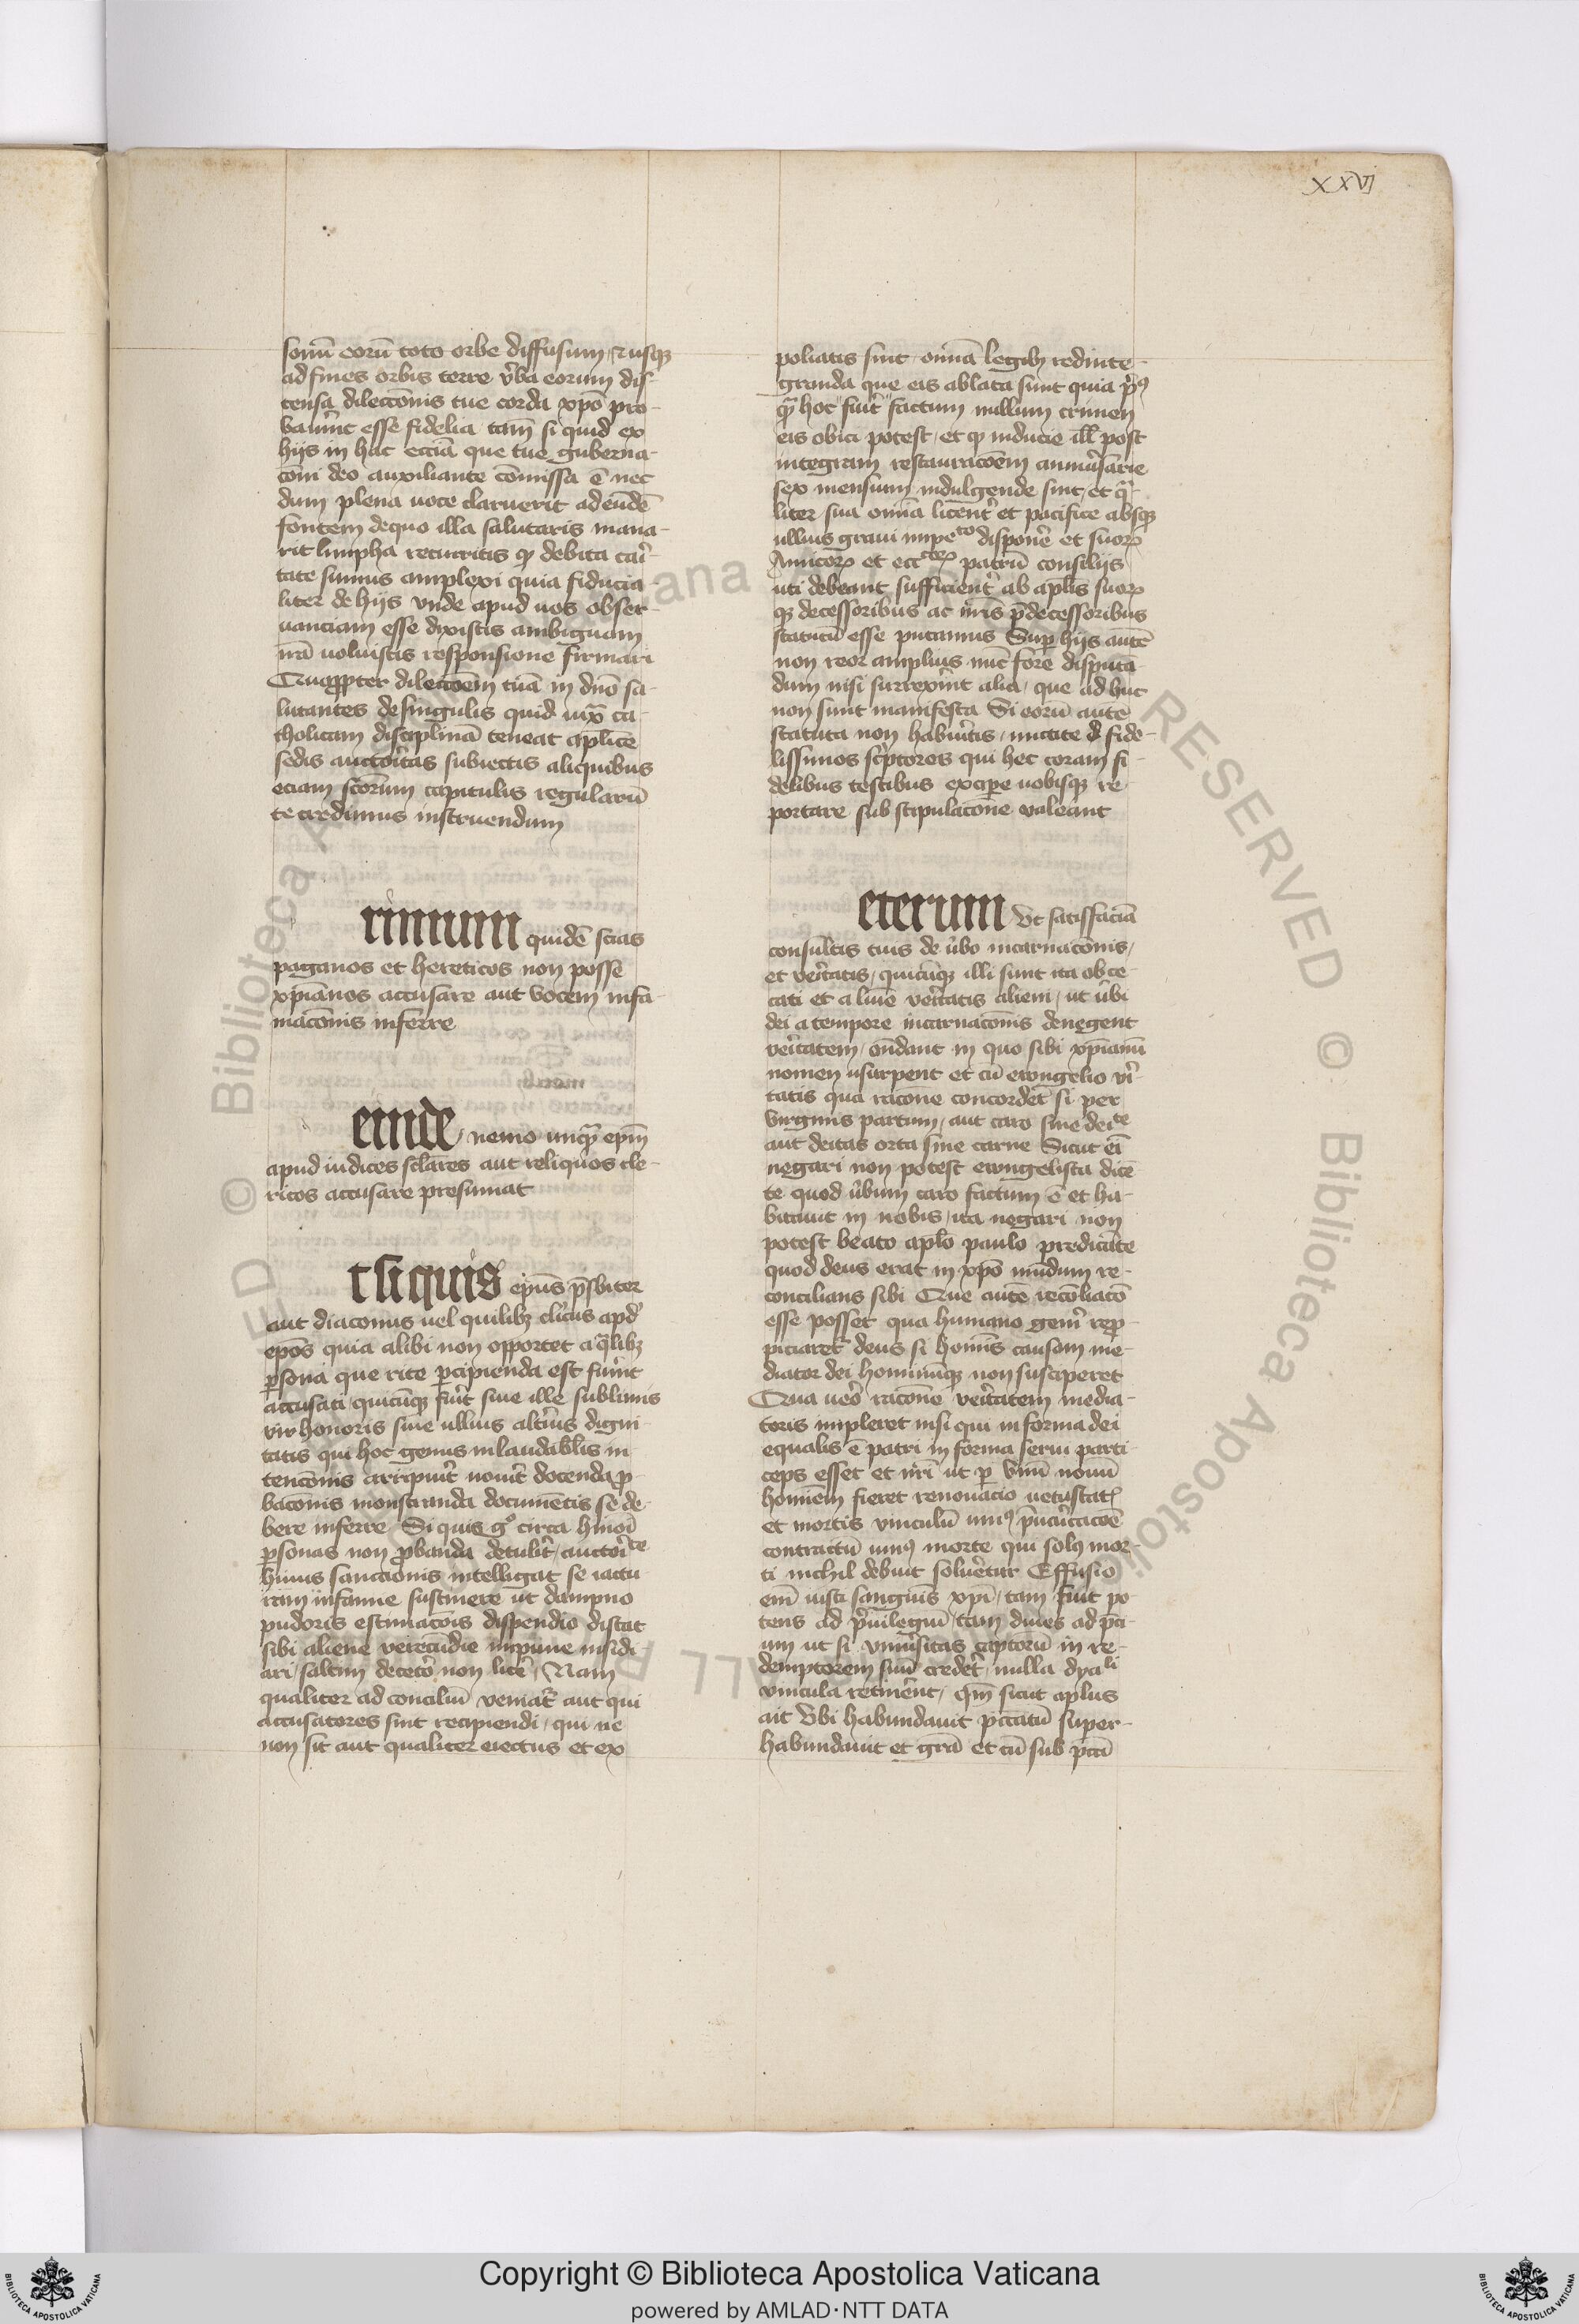 xxvj
sonū eorū toto orbe diffusum, & usqꝫ
ad fines orbis terre v̄ba eorum dif-
tensa dilectionis tue corda xp̄o pro-
bauer̄nt esse fidelia tam̄ si quid ex
hijs in hac eccīa que tue guberna-
cōni deo auxiliante cōmissa ē nec
dum plena uoce claruerit ad eūdē
fontem de quo illa salutaris mana-
rit limpha recurritis qꝫ debita cari-
tate sumus amplexi quia fiducia-
liter de hijs vnde apud uos obser-
uanciam esse dixistis ambiguam
nrā uoluistis responsione firmari
Quapropter dilectōem tuā in dnō sa-
lutantes de singulis quid iuxᵃ ca-
tholicam disciplinā teneat aplice
sedis auctoritas subiectis aliquibus
eciam scōrum capitulis regularū
te credimus instruendum
rimum quidē scias
paganos et hereticos non posse
xpīanos accusare aut vocem infa-
macōnis inferre
einde, nemo unqᵃ epm̄
apud iudices sclares aut reliquos cle-
ricos accusare presumat
t si quis epūs p̄sbiter
aut diaconus uel quilibꝫ clicus apd'
epōs quia alibi non opportet a qᵃlibꝫ
ꝑsona que rite ꝑcipienda est fuer̄nt
accusati quicūqꝫ fuer̄t siue ille sublimis
vir honoris siue ullius alteri̾us digni-
tatis qui hoc genus inlaudabilis in-
tencōnis arripuer̄t nouer̄t docenda ꝓ-
bacōnis monstranda documētis se de-
bere inferre Si quis gᵒ circa hmōi
ꝑsonas non ꝓbanda detuler̄t, auctoriᵗᵉ
huius sanctionis intelligat se iactu-
ram infamie sustinere ut dampno
pudoris estimacōis dispendio discat
sibi aliene verecūdie impune insidi-
ari, saltim decetō non licere, Nam
qualiter ad conciliū veniat᷑ aut qui
accusatores sint recipiendi, qui ne
non sit aut qualiter eiectus et ex
poliatis sint, omīa legibꝫ redinte-
granda que eis ablata sunt quia pri̾ꝰ
qᵃ hoc fuer̄t factum nullum crimen
eis obici potest, et qꝫ inducie ill̄ post
integram restauracōem anniu̾sarie
sex mensium indulgende sint, et qᵃ-
liter sua omīa licent̾ et pacifice absqꝫ
ullius graui impeᵗᵒ disponer̄ et suorꝝ
Amicorꝝ et ecc̄ᵗᵉꝝ patrū consilijs
uti debeant sufficient̾ ab ap̄lis suorꝝ
qꝫ decessoribus ac nr̄is p̄decessoribus
statutū esse putamus Suꝑ hijs autē
non reor amplius nūc fore disputā-
dum nisi surrexer̄int alia, que ad huc
non sunt manifesta Si eorū autē
statuta non habuer̄tis, mittite fide-
lissimos sc̾ptores qui hec coram fi-
delibus testibus exciꝑe uobisqꝫ re-
portare sub stipulacōne valeant
eterum vt satisfaciā
consultis tuis de ūbo incarnacōnis,
et veritatis, quicūqꝫ illi sunt ita obce-
cati et a lumīe veritatis alieni, ut ūbi
dei a tempore incarnacōnis denegent
veritatem, on̄dant in quo sibi xpīanū
nomen usurpent et cū ewngelio vi̾-
tatis qua racōne concordēt si per
virginis partum, aut caro sine deiᵗᵉ
aut deitas orta sine carne Sicut eī
negari non potest ewngelista dicē-
te quod ūbum caro factum ē et ha-
bitauit in nobis, ita negari non
potest beato aplo paulo predicāte
quod deus erat in xpō mūdum re-
concilians sibi Que autē recōliacō
esse posset qua humano geni̾ repꝓ-
piciaret᷑ deus si homīs causam me-
diator dei hominūqꝫ non susciperet
Qua ueᵒ racōne veritatem media-
toris impleret nisi qui in forma dei
equalis ē patri in forma serui parti-
ceps esset et nr̄i ut ꝑ vnū nouū
homīem fieret renouacio uetustatꝭ
et mortis vinculū uniꝰ p̄uaricacōē
contractū uniꝰ morte qui solꝰ mor-
ti nichil debuit solueretur Effusio
em̄ iusti sanguīs xpī, tam fuit po-
tens ad p̾uilegiū, tam diues ad p̄ci-
um ut si vniu̾sitas captorū in re-
demptorem suū crederet, nulla dyaˡⁱ
vincula retinerent, Qm̄ sicut aplus
ait Vbi habundauit pēcatū super-
habundauit et grā et cū sub pcti̾